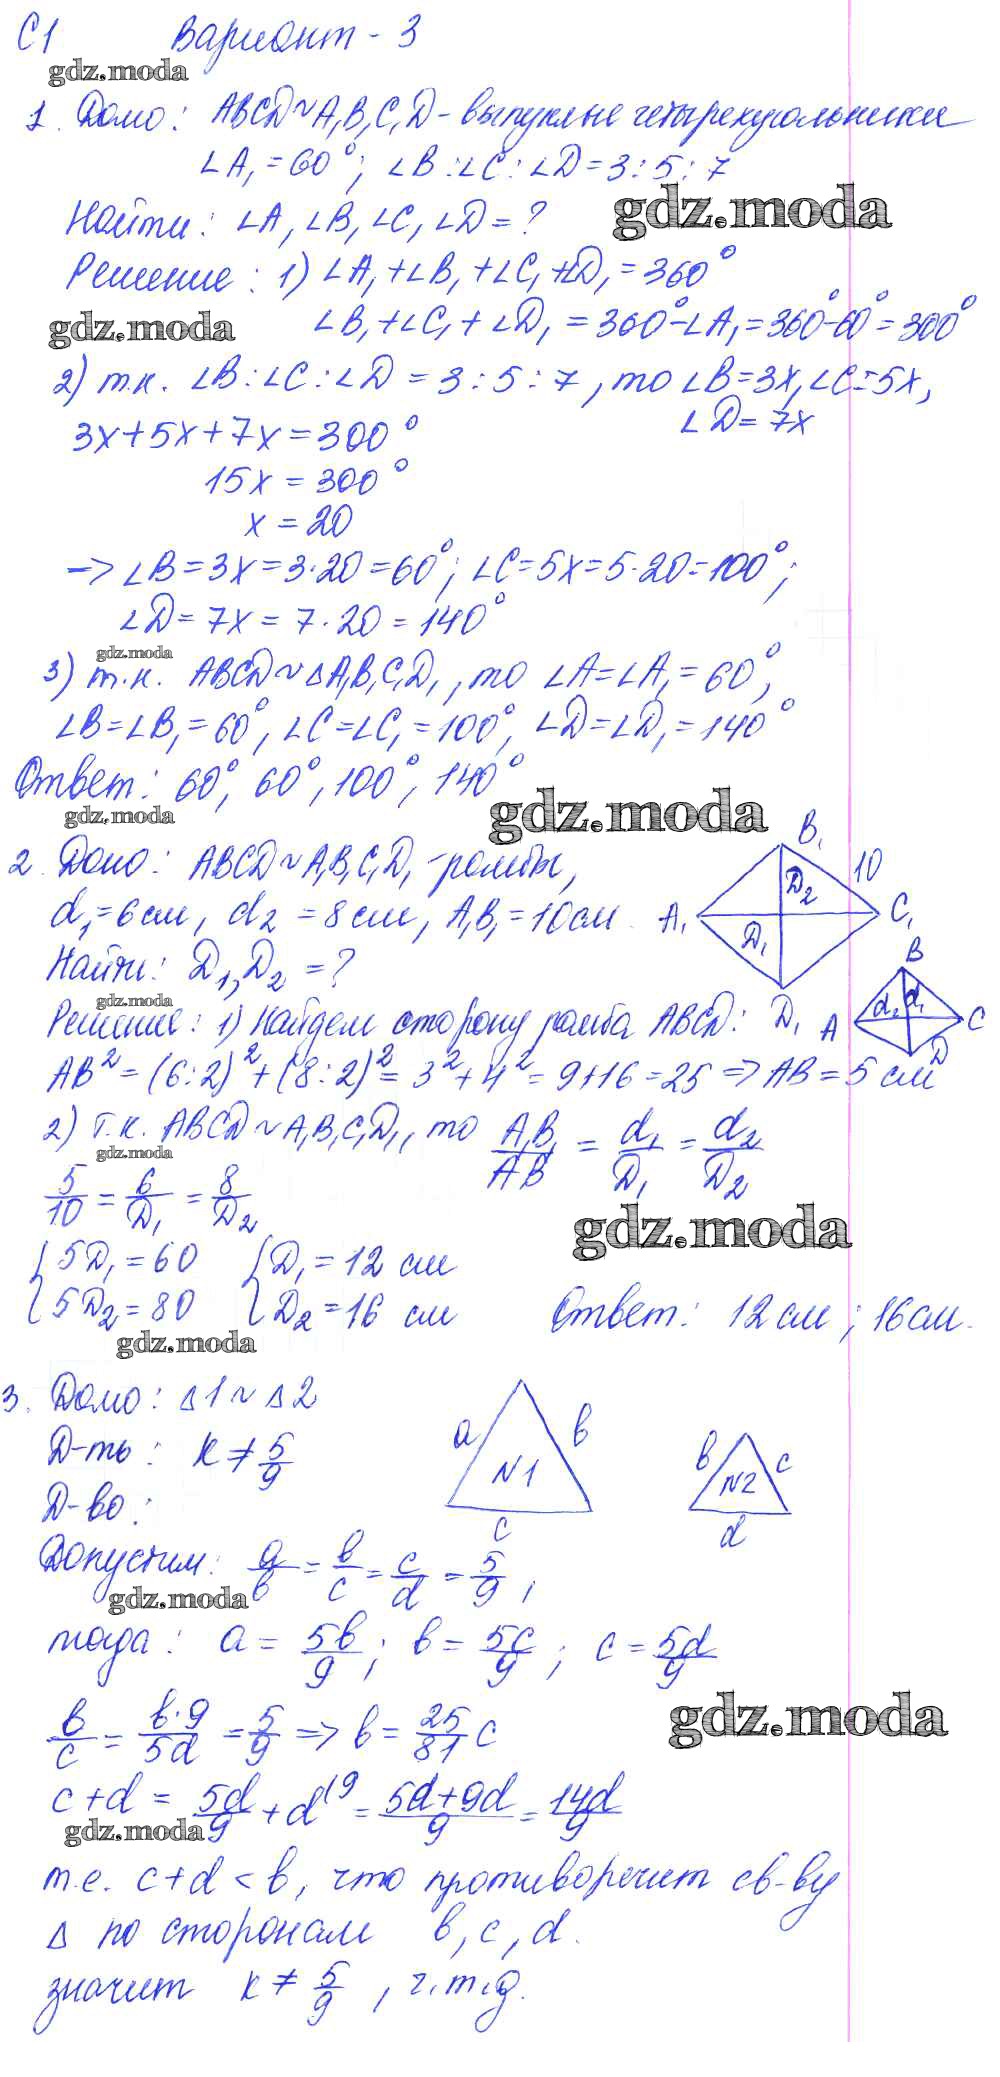 С1 Вариант - 3
gdz.moda
1. Дано: ABCD ~ A₁B₁C₁D - выпуклые четырехугольники
∠A₁ = 60°; ∠B : ∠C : ∠D = 3 : 5 : 7
gdz.moda
Найти: ∠A, ∠B, ∠C, ∠D = ?
Решение: 1) ∠A₁ + ∠B₁ + ∠C₁ + ∠D₁ = 360°
gdz.moda
∠B₁ + ∠C₁ + ∠D₁ = 360° - ∠A₁ = 360° - 60° = 300°
2) т.к. ∠B : ∠C : ∠D = 3 : 5 : 7, то ∠B = 3x, ∠C = 5x,
∠D = 7x
3x + 5x + 7x = 300°
15x = 300°
x = 20
=> ∠B = 3x = 3·20 = 60°; ∠C = 5x = 5·20 = 100°;
∠D = 7x = 7·20 = 140°
gdz.moda
3) т.к. ABCD ~ ΔA₁B₁C₁D₁, то ∠A = ∠A₁ = 60°,
∠B = ∠B₁ = 60°, ∠C = ∠C₁ = 100°, ∠D = ∠D₁ = 140°
Ответ: 60°, 60°, 100°, 140°
gdz.moda
gdz.moda
2. Дано: ABCD ~ A₁B₁C₁D₁ - ромбы,
d₁ = 6 см, d₂ = 8 см, A₁B₁ = 10 см.
Найти: D₁, D₂ = ?
B₁
10
D₂
A₁
C₁
D₁
B
d₂ d₁
A
C
D₁
D
gdz.moda
Решение: 1) Найдем сторону ромба ABCD:
AB² = (6:2)² + (8:2)² = 3² + 4² = 9 + 16 = 25 => AB = 5 см
2) Т.к. ABCD ~ A₁B₁C₁D₁, то A₁B₁/AB = d₁/D₁ = d₂/D₂
gdz.moda
5/10 = 6/D₁ = 8/D₂
gdz.moda
{ 5D₁ = 60 { D₁ = 12 см
5D₂ = 80 D₂ = 16 см
Ответ: 12 см; 16 см.
gdz.moda
3. Дано: Δ1 ~ Δ2
Д-ть: k ≠ 5/9
Д-во:
a в
N1
c
в c
N2
d
Допустим: a/в = в/c = c/d = 5/9,
gdz.moda
тогда: a = 5в/9; в = 5c/9; c = 5d/9
в/c = в·9/5d = 5/9 => в = 25/81 c
gdz.moda
c + d = 5d/9 + d⁽⁹ = 5d+9d/9 = 14d/9
gdz.moda
т.е. c + d < в, что противоречит св-ву
Δ по сторонам в, c, d.
значит k ≠ 5/9, ч.т.д.